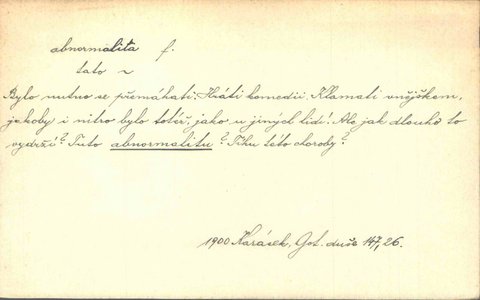 abnormalita f.
tato ~
Bylo nutno se přemáhati. Hráti komedii. Klamati vnějškem,
jakoby i nitro bylo totéž, jako u jiných lidí! Ale jak dlouho to
vydrží? Tuto abnormalitu? Tíhu této choroby?
1900 Karásek, Got. duše 147, 26.